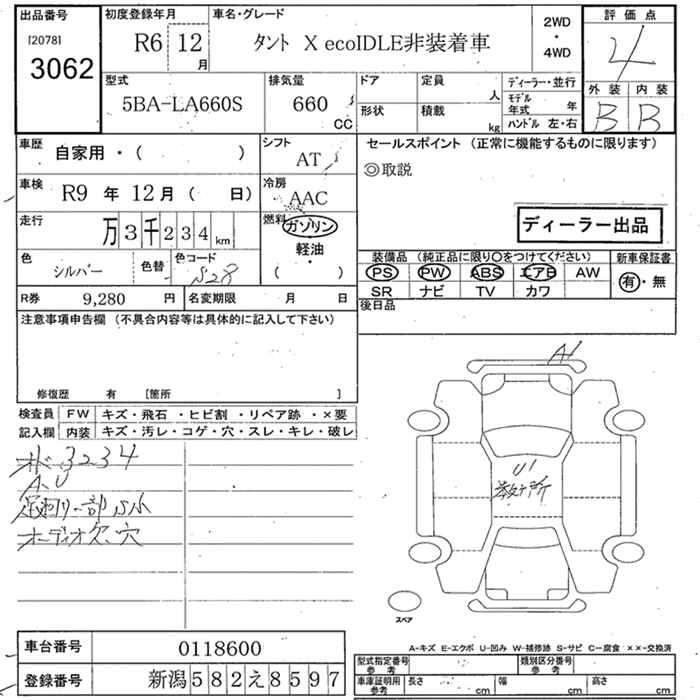 出品番号
[2078]
3062
初度登録年月
R6 12月
車名・グレード
タント X ecoIDLE非装着車
2WD
・
4WD
評価点
4
外装 内装
B B
型式
5BA-LA660S
排気量
660 CC
ドア
形状
定員 人
積載 kg
ディーラー・並行
モデル年式 年
ハンドル 左・右
車歴
自家用・( )
シフト
AT
セールスポイント (正常に機能するものに限ります)
◎取説
車検
R9 年 12月 ( 日)
冷房
AAC
ディーラー出品
走行
万3千234 km
燃料
ガソリン
軽油
・
( )
色
シルバー
色替
色コード
S28
装備品 (純正品に限り〇をつけてください)
PS PW ABS エアB AW
SR ナビ TV カワ
新車保証書
有・無
R券 9,280 円
名変期限 月 日
後日品
注意事項申告欄 (不具合内容等は具体的に記入して下さい)
修復歴 有 [箇所 ]
検査員
記入欄
FW キズ・飛石・ヒビ割・リペア跡・×要
内装 キズ・汚レ・コゲ・穴・スレ・キレ・破レ
オド 3234
A.U
足廻り一部サビ
オーディオ欠.穴
A1
U1
数ケ所
スペア
A-キズ E-エクボ U-凹み W-補修跡 S-サビ C-腐食 ××-交換済
車台番号 0118600
登録番号 新潟582え8597
型式指定番号
参考
類別区分番号
参考
車庫証明用
参考
長さ cm
幅 cm
高さ cm